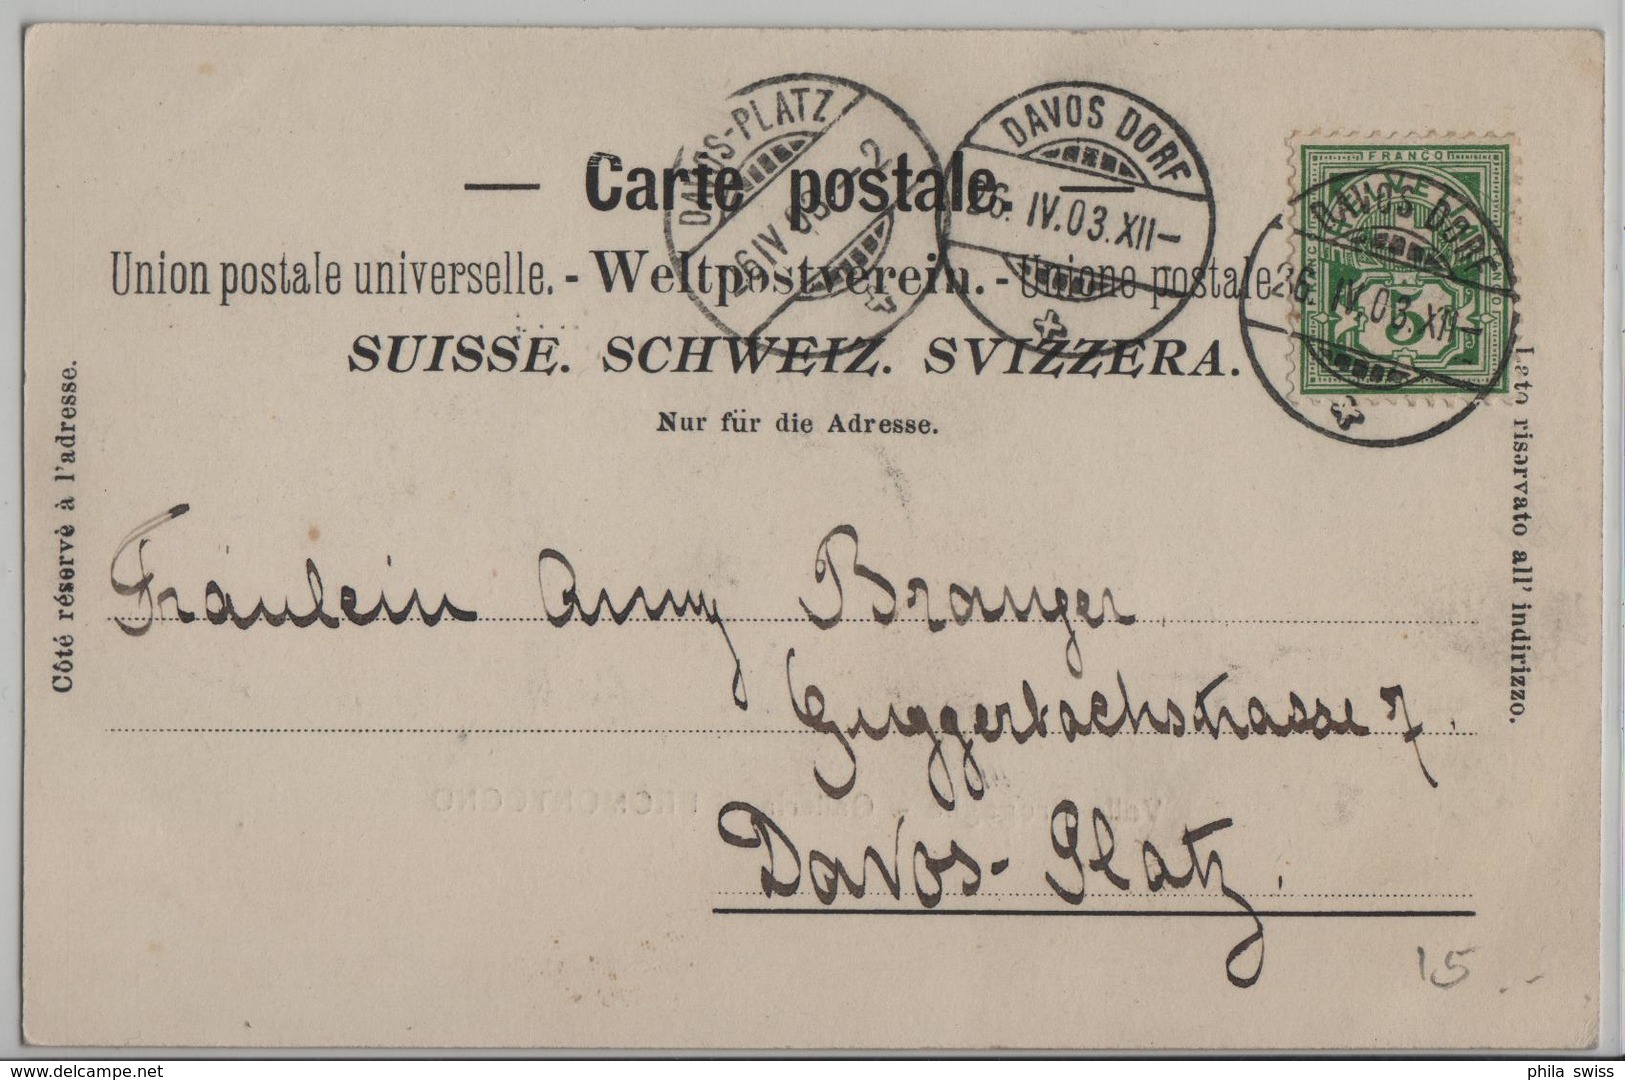 DAVOS-PLATZ
26 IV 03
2
DAVOS DORF
26. IV. 03. XII–
FRANCO
HELVETIA
5
DAVOS DORF
26. IV. 03. XII–
— Carte postale. —
Union postale universelle. - Weltpostverein. - Unione postale
SUISSE. SCHWEIZ. SVIZZERA.
Nur für die Adresse.
Côté réservé à l'adresse.
Lato riservato all' indirizzo.
Fräulein Anny Branger
Guggerbachstrasse 7.
Davos-Platz.
15
delcampe.net
phila swiss